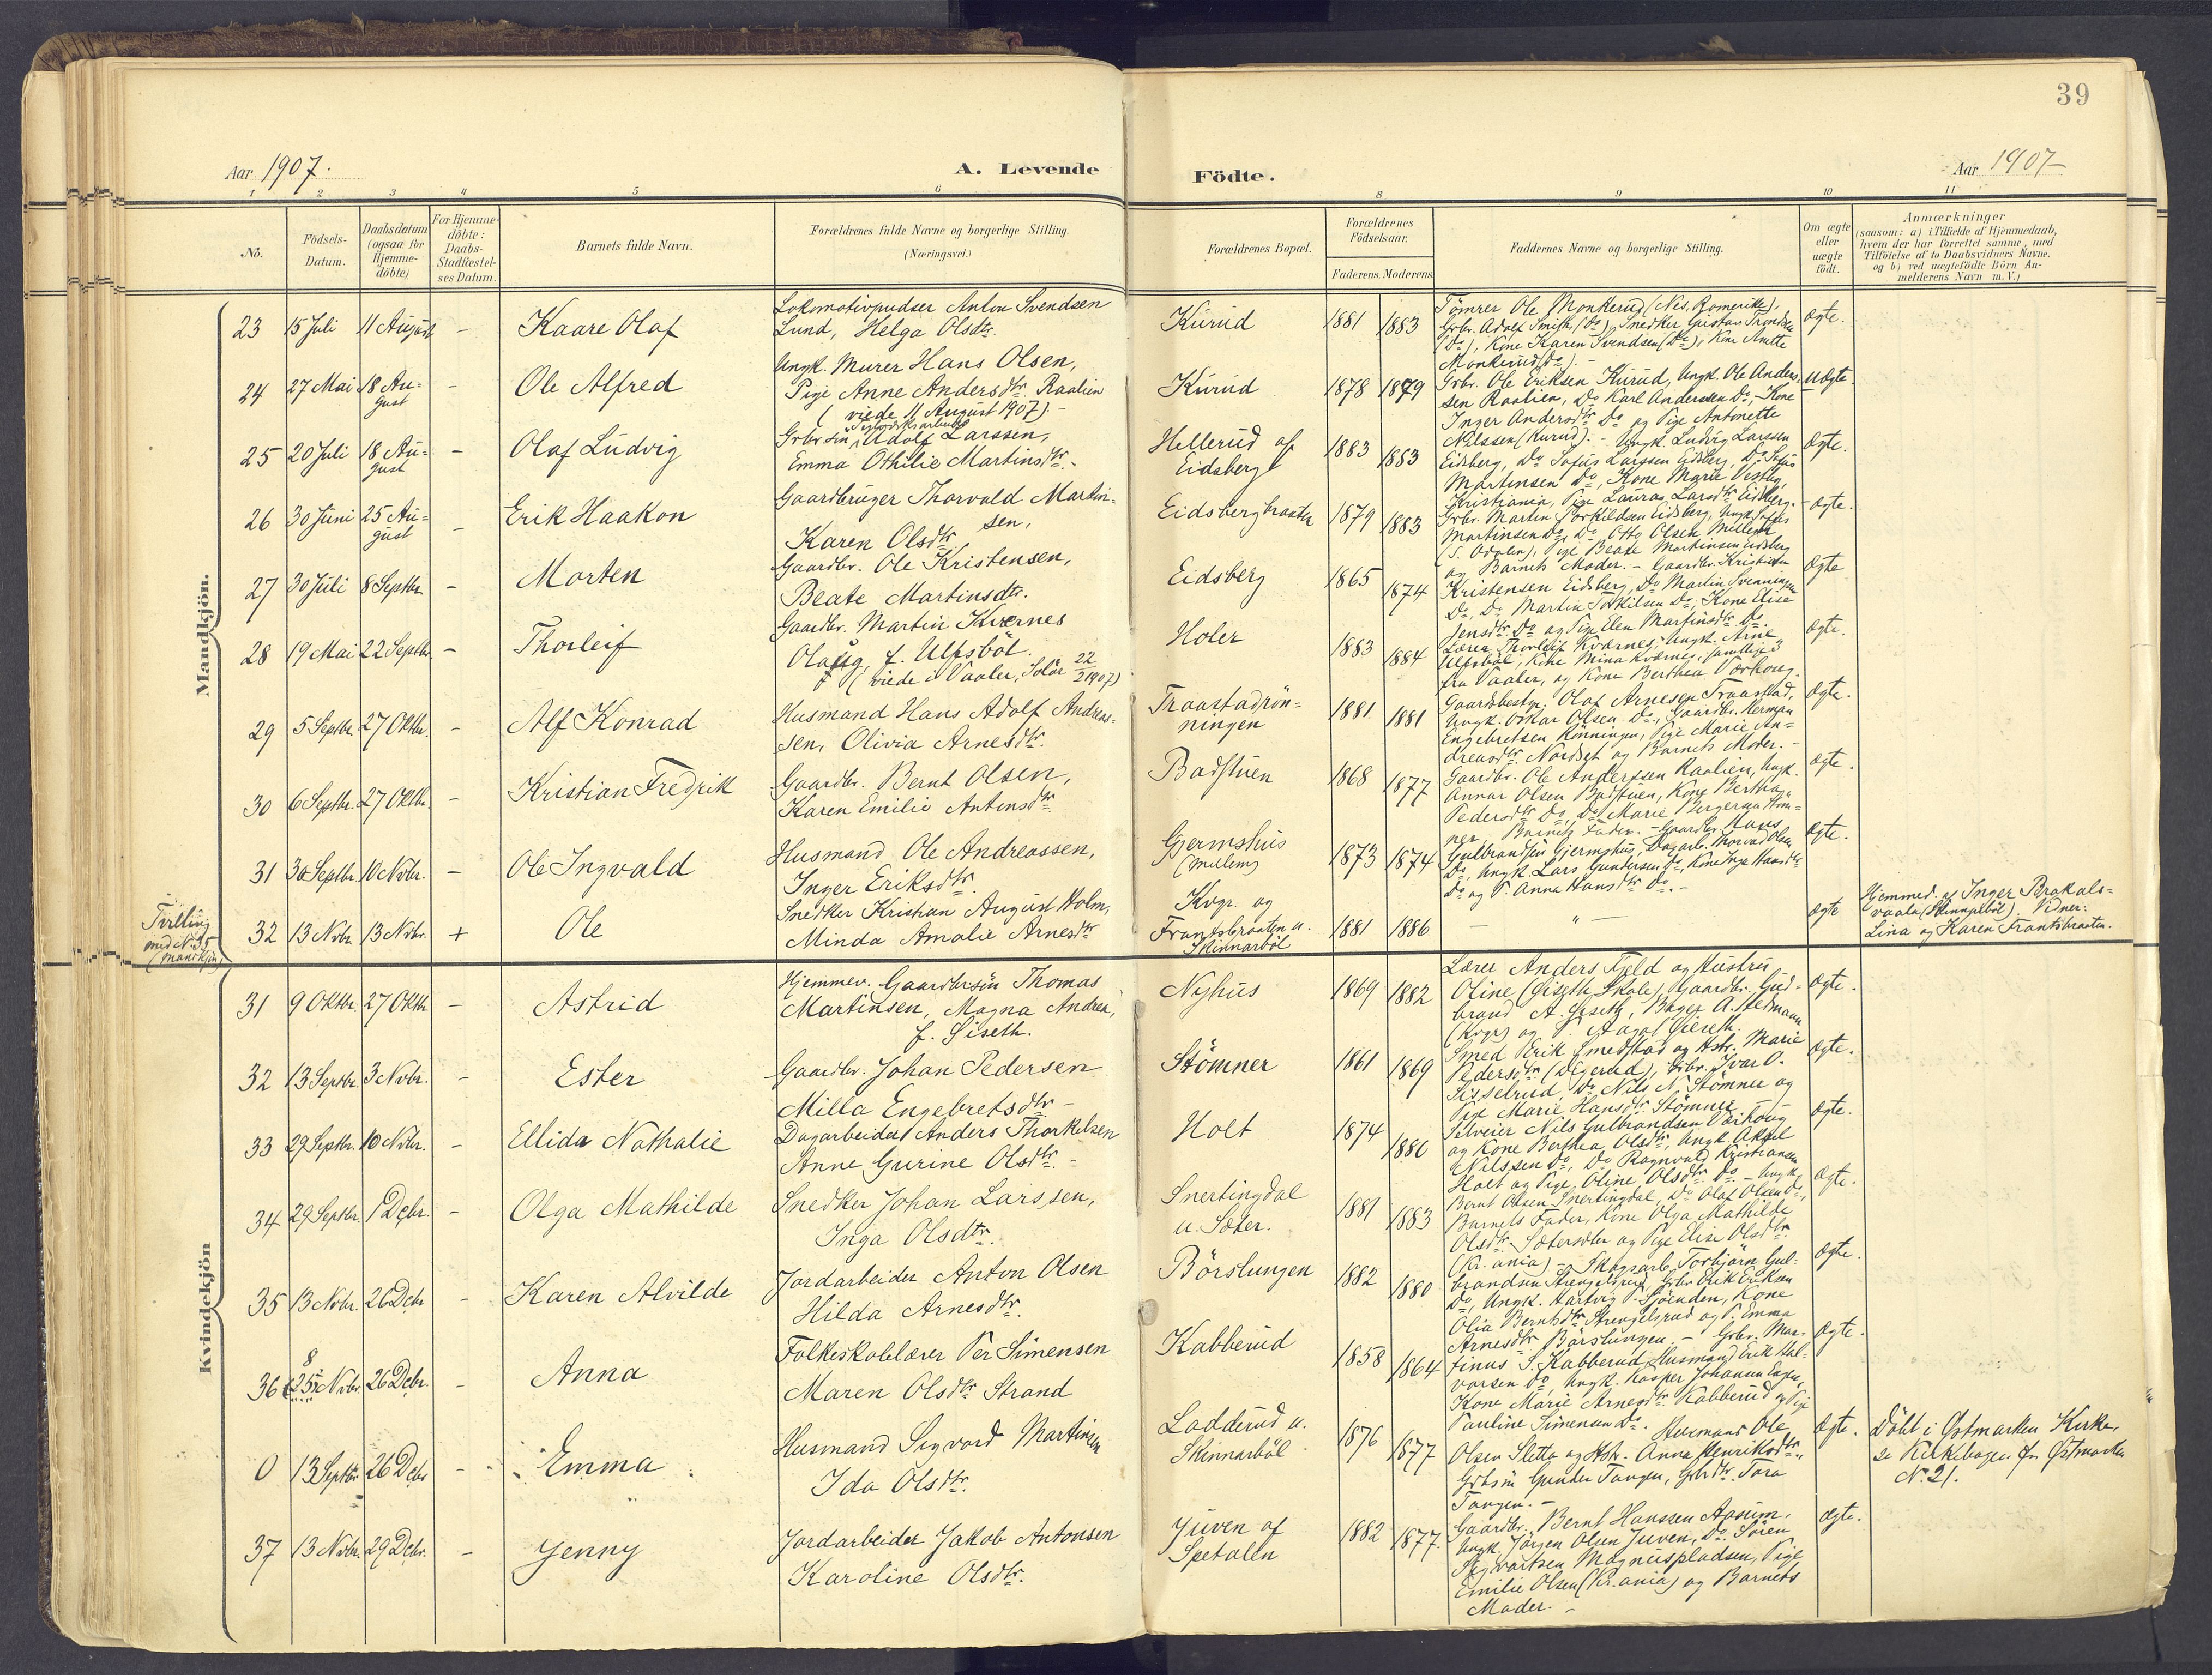 39
Aar 1907.
A. Levende
Födte.
Aar 1907
1 2 3 4 5 6
8 9 10 11
No.
Födsels-Datum.
Daabsdatum (ogsaa for Hjemme-döbte)
For Hjemme-döbte: Daabs-Stadfæstel-ses Datum.
Barnets fulde Navn.
Forældrenes fulde Navne og borgerlige Stilling. (Næringsvei.)
Forældrenes Bopæl.
Forældrenes Födselsaar.
Faderens. Moderens.
Faddernes Navne og borgerlige Stilling.
Om ægte eller uægte födt.
Anmærkninger
(saasom: a) i Tilfælde af Hjemmedaab,
hvem der har forrettet samme, med
Tilföielse af to Daabsvidners Navne.
og b) ved uægtefödte Börn An-
melderens Navn m. V.)
Mandkjön.
23 15 Juli 11 August - Kaare Olaf
Lokomotivpudser Anton Svendsen
Lund, Helga Olsdtr.
Kurud 1881 1883
Tömrer Ole Monkerud (Nes, Romerike),
Grbr. Adolf Smith, (Do), Snedker Gustav Trondsen
(Do), Kone Karen Svendsen (Do), Kone Anette
Monkerud (Do). -
ægte.
24 27 Mai 18 Au-
gust - Ole Alfred
Ungk. Murer Hans Olsen,
Pige Anne Andersdtr. Raalien
(viede 11 August 1907). -
Kurud 1878 1879
Grbr. Ole Eriksen Kurud, Ungk. Ole Anders-
sen Raalien, Do Karl Anderssen Do, Kone
Inger Andersdtr Do og Pige Antonette
Nilssen (Kurud). -
uægte.
25 20 Juli 18 Au-
gust - Olaf Ludvig
Grbrsön Adolf Larssen,
Emma Othilie Martinsdtr. -
Hellerud af
Eidsberg 1883 1883
Ungk. Ludvig Larssen
Eidsberg, Do Sofus Larssen Eidsberg, Do Sofus
Martinsen Do, Kone Marie Vestby,
Kristiania, Pige Laura Larsdtr Eidsberg. -
ægte.
26 30 Juni 25 Au-
gust - Erik Haakon
Gaardbruger Thorvald Martin-
sen,
Karen Olsdtr
Eidsbergbraaten 1879 1883
Grbr. Martin Torkildsen Eidsberg, Ungk. Sofus
Martinsen Do, Do Otto Olsen Milleth
(S. Odalen), Pige Beate Martinsen Eidsberg
og Barnets Moder. -
ægte.
27 30 Juli 8 Septbr. - Morten
Gaardbr. Ole Kristensen,
Beate Martinsdtr.
Eidsberg 1865 1874
Gaardbr. Kristian
Kristensen Eidsberg, Do Martin Svenningsen
Do, Do Martin Torkilsen Do, Kone Elise
Jensdtr Do og Pige Elen Martinsdtr Do.
ægte
28 19 Mai 22 Septbr. - Thorleif
Gaardbr. Martin Kvernes
Olaug, f. Ulfsböl.
(viede i Vaaler, Solör 22/2 1907)
Holer 1883 1884
Lærer Thorleif Kværnes, Ungk. Arne
Ulfsböl, Kone Mina Kværnes, samtlige 3
fra Vaaler, og Kone Berthea Værhoug.
ægte.
29 5 Septbr. 27 Oktbr. - Alf Konrad
Husmand Hans Adolf Andreas-
sen, Olivia Arnesdtr.
Traastadrön-
ningen 1881 1881
Gaardsbestyr. Olaf Arnesen Traastad,
Ungk. Oskar Olsen Do, Gaardbr. Herman
Engebretsen Rönningen, Pige Marie An-
dreasdtr Nordset og Barnets Moder. -
ægte.
30 6 Septbr. 27 Oktbr. - Kristian Fredrik
Gaardbr. Bernt Olsen,
Karen Emilie Antonsdtr
Badstuen 1868 1877
Gaardbr. Ole Anderssen Raalien, Ungk.
Annar Olsen Badstuen, Kone Berthea
Pedersdtr Do, Do Marie Bergersen Stöm-
ner, Barnets Fader. -
ægte.
31 30 Septbr. 10 Novbr. - Ole Ingvald
Husmand Ole Andreassen,
Inger Eriksdtr.
Gjermshus
(Mellem) 1873 1874
Gaardbr. Hans
Gulbrandsen Gjermshus, Dagarb. Thorvald Olsen
Do, Ungk. Lars Gundersen Do, Kone Inga Hansdtr
Do og P. Anna Hansdtr Do. -
ægte.
Tvilling
med No 35
(Kvindkjön)
32 13 Novbr. 13 Novbr. + Ole
Snedker Kristian August Holm,
Minda Amalie Arnesdtr
Kvgr. og
Frantsbraaten u.
Skinnarböl 1881 1886
— " —
ægte
Hjemmed. af Inger Brakals-
vaala (Skinnarböl). Vidner:
Lina og Karen Frantsbraaten.
Kvindekjön
31 9 Oktbr. 27 Oktbr - Astrid
Hjemmev. Gaardbrsön Thomas
Martinsen, Magna Andrea,
f. Siseth.
Nyhus 1869 1882
Lærer Anders Fjeld og Hustru
Oline (Giseth Skole), Gaardbr. Gud-
brand A. Giseth, Bager A. Stedmann
(Kvgr) og P. Aagot Giseth.
ægte.
32 13 Septbr. 3 Novbr. - Ester
Gaardbr. Johan Pedersen
Milla Engebretsdtr -
Stömner 1861 1869
Smed Erik Smedstad og Hstr. Marie
Pedersdtr (Digerud), Grbr. Ivar O.
Sisselrud, Do Nils N. Stömner og
Pige Marie Hansdtr Stömner -
ægte.
33 29 Septbr. 10 Novbr. - Ellida Nathalie
Dagarbeider Anders Thorkelsen
Anne Gurine Olsdtr. -
Holt 1874 1880
Selveier Nils Gulbrandsen Værhoug
og Kone Berthea Olsdtr, Ungk. Aksel
Nilssen Do, Do Ragnvald Kristiansen
Holt og Pige Oline Olsdtr Do. -
ægte.
34 29 Septbr. 1 Debr. - Olga Mathilde
Snedker Johan Larssen,
Inga Olsdtr.
Snertingdal
u. Sæter. 1881 1883
Ungk.
Bernt Olsen Snertingdal, Do Olaf Olsen Do,
Barnets Fader, Kone Olga Mathilde
Olsdtr Sætersæter og Pige Elise Olsdtr
(Kr.ania) -
ægte.
35 13 Novbr. 26 Debr - Karen Alvilde
Jordarbeider Anton Olsen
Hilda Arnesdtr.
Börslungen 1882 1880
Skogsarb. Torbjörn Gul-
brandsen Strengelsrud, Grbr. Erik Eriksen
Do, Ungk. Hartvig P. Sjöenden, Kone
Olia Berntsdtr Strengelsrud og P. Emma
Arnesdtr Börslungen. -
ægte.
36 8 (25) Novbr. 26 Debr. - Anna
Folkeskolelærer Per Simensen
Maren Olsdtr Strand
Kabberud 1858 1864
Grbr. Mar-
tinus S. Kabberud, Husmand Erik Hal-
vorsen Do, Ungk. Kasper Johansen
Kone Marie Arnesdtr Kabberud og Pige
Pauline Simensen Do.
ægte.
0 13 Septbr. 26 Debr - Emma
Husmand Sigvard Martinsen
Ida Olsdtr.
Ladderud u.
Skinnarböl 1876 1877
Husmand Ole
Olsen Sletta og Hstr. Anna Henriksdtr,
Grbsön Gunder Tangen, Grbrdtr. Tora
Tangen. -
ægte.
Döbt i Østmarken Kirke,
se Kirkebogen for Østmarken
No. 21.
37 13 Novbr. 29 Debr. - Jenny
Jordarbeider Jakob Antonsen
Karoline Olsdtr.
Juven af
Spetalen 1882 1877.
Gaardbr. Bernt Hanssen Aasum,
Ungk. Jörgen Olsen Juven, Do Sören
Sigvartsen Magnuspladsen, Pige
Emilie Olsen (Kr.ania) og Barnets
Moder. -
ægte.